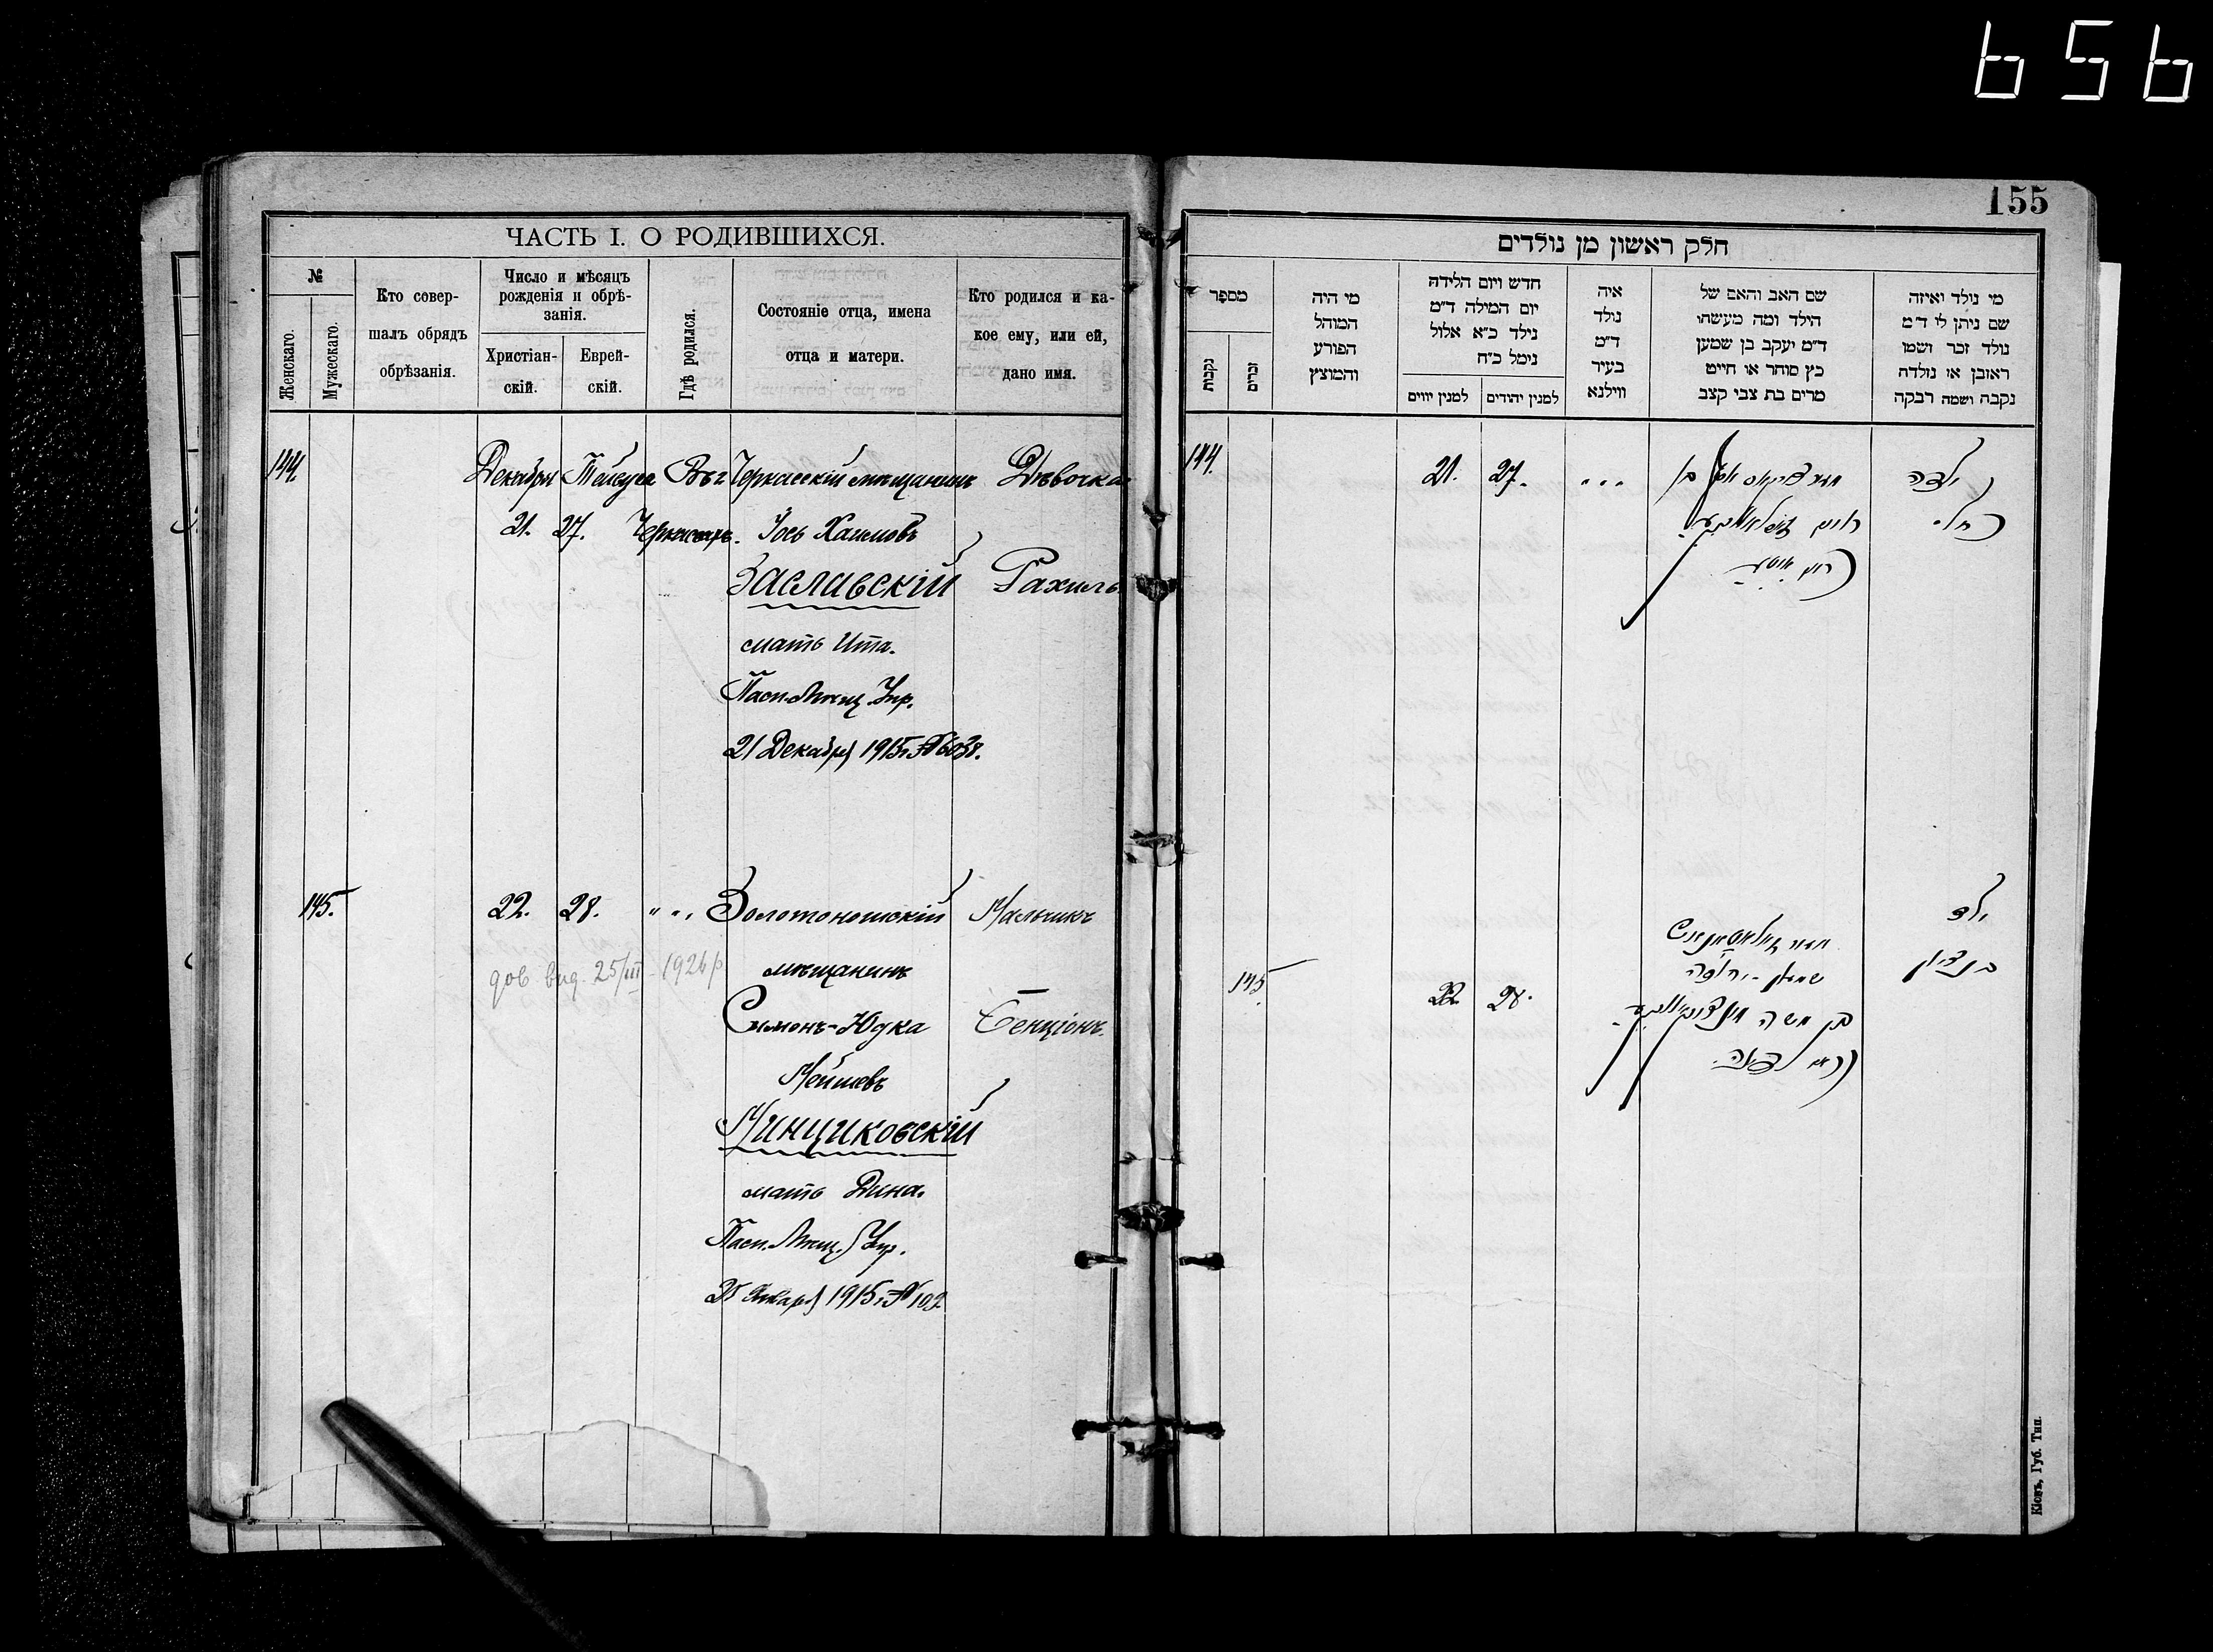 656
155
ЧАСТЬ I. О РОДИВШИХСЯ.
№
Женскаго.
Мужескаго.
Кто совер-
шалъ обрядъ
обрѣзанія.
Число и мѣсяцъ
рожденія и обрѣ-
занія.
Христіан-
скій.
Еврей-
скій.
Гдѣ родился.
Состояніе отца, имена
отца и матери.
Кто родился и ка-
кое ему, или ей,
дано имя.
144.
Декабря Тейвуса Въ г Черкасскій мѣщанинъ Дѣвочка
21. 27. Черкассы. Іось Хаимовъ
Заславскій Рахиль
мать Ита.
Пасп. Мѣщ. Упр.
21 Декабря 1915 г. №6038.
145. 22. 28. " " , Золотоношскій Мальчикъ
дов вид. 25/III - 1926 р
мѣщанинъ
Симонъ-Юдка Бенціонъ.
Мойшевъ
Минциковскій
мать Дина.
Пасп. Мѣщ. Упр.
Января 1915 г. №109.
חלק ראשון מן נולדים
מספר
נקבות
זכרים
מי היה
המוהל
הפורע
והמוצץ
חדש ויום הלידה
יום המילה ד״מ
נילד כ״א אלול
נימל כ״ח
למנין יווים
למנין יהודים
איה
נולד
ד״מ
בעיר
ווילנא
שם האב והאם של
הילד ומה מעשהו
ד״מ יעקב בן שמען
כץ סוחר או חייט
מרים בת צבי קצב
מי נולד ואיזה
שם ניתן לי ד״מ
נולד זכר ושמו
ראובן או נולדה
נקבה ושמה רבקה
144. 21. 27. " " "
ילדה
רחל
145. 22. 28.
ילד
בן ציון
בן משה
Кіевъ, Губ. Тип.